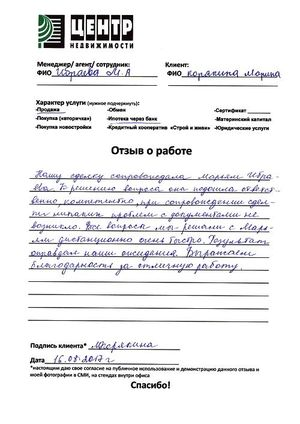 ЦЕНТР
НЕДВИЖИМОСТИ
Менеджер/ агент/ сотрудник:
ФИО Ибраева М.А
Клиент:
ФИО Корякина Марина
Характер услуги (нужное подчеркнуть):
-Продажа -Обмен -Сертификат
-Покупка «вторички» -Ипотека через банк -Материнский капитал
-Покупка новостройки -Кредитный кооператив «Строй и живи» -Юридические услуги
Отзыв о работе
Нашу сделку сопровождала Марьям Ибра-
ева. К решению вопроса она подошла ответст-
венно, компетентно, при сопровождении сдел-
ки никаких проблем с документами не
возникло. Все вопросы мы решали с Марь-
ям дистанционно очень быстро. Результат
оправдал наши ожидания. Выражаем
благодарность за отличную работу.
Подпись клиента* МКорякина
Дата 16.08.2017 г
*настоящим даю свое согласие на публичное использование и демонстрацию данного отзыва и
моей фотографии в СМИ, на стендах внутри офиса
Спасибо!